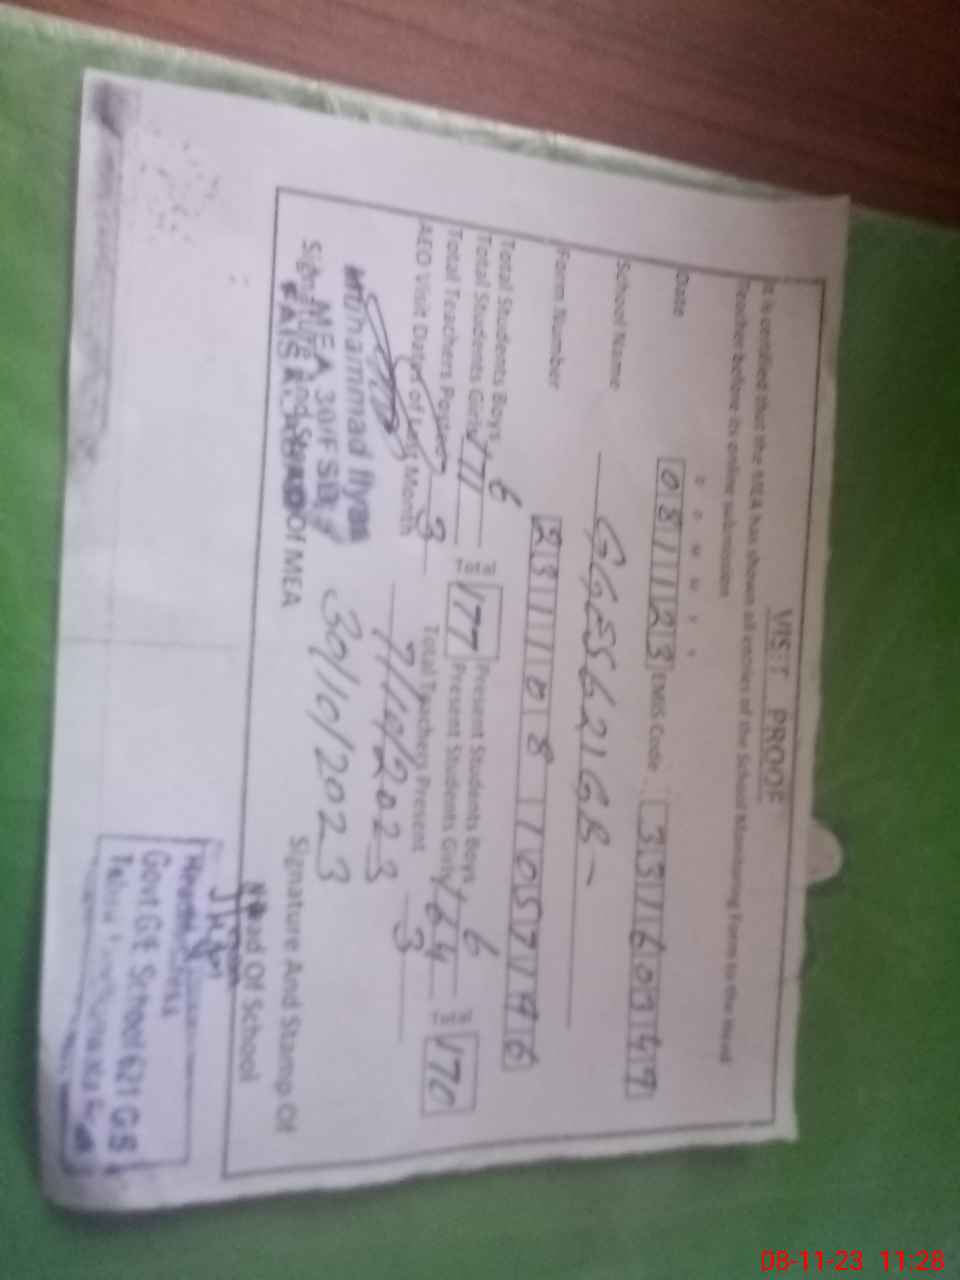 VISIT PROOF
It is verified that the MEA has shown all entries of the School Monitoring Form to the Head
Teacher before its online submission
D D M M Y Y
Date 081123 EMIS Code
School Name GGES 621 GB -
Form Number
Total Students Boys 6 Present Students Boys 6
Total Students Girls 171 177 Present Students Girls 164 170
Total Teachers Posted 3 Total Teachers Present 3
AEO Visit Dates of Last Month 7/10/2023
30/10/2023
Muhammad Ilyas
MEA
Signature And Stamp Of MEA
Signature And Stamp Of
Head Of School
Headmistress
Govt GE School 621 GB
08-11-23 11:28